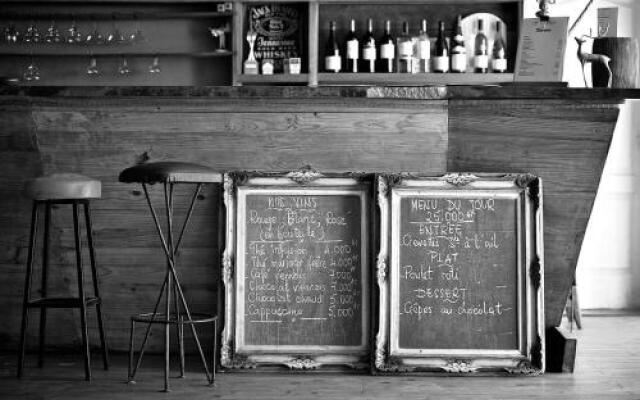 JACK DANIEL'S
Tennessee
WHISKEY
NOS VINS
Rouge, Blanc, Rosé
(en bouteille)
Thé infusion 4.000
Thé 4.000
Café 7.000
Chocolat viennois 7.000
Chocolat chaud 5.000
Cappuccino 5.000
MENU DU JOUR
25.000
ENTRÉE
Crevettes à l'ail
PLAT
Poulet rôti
DESSERT
Crêpes au chocolat